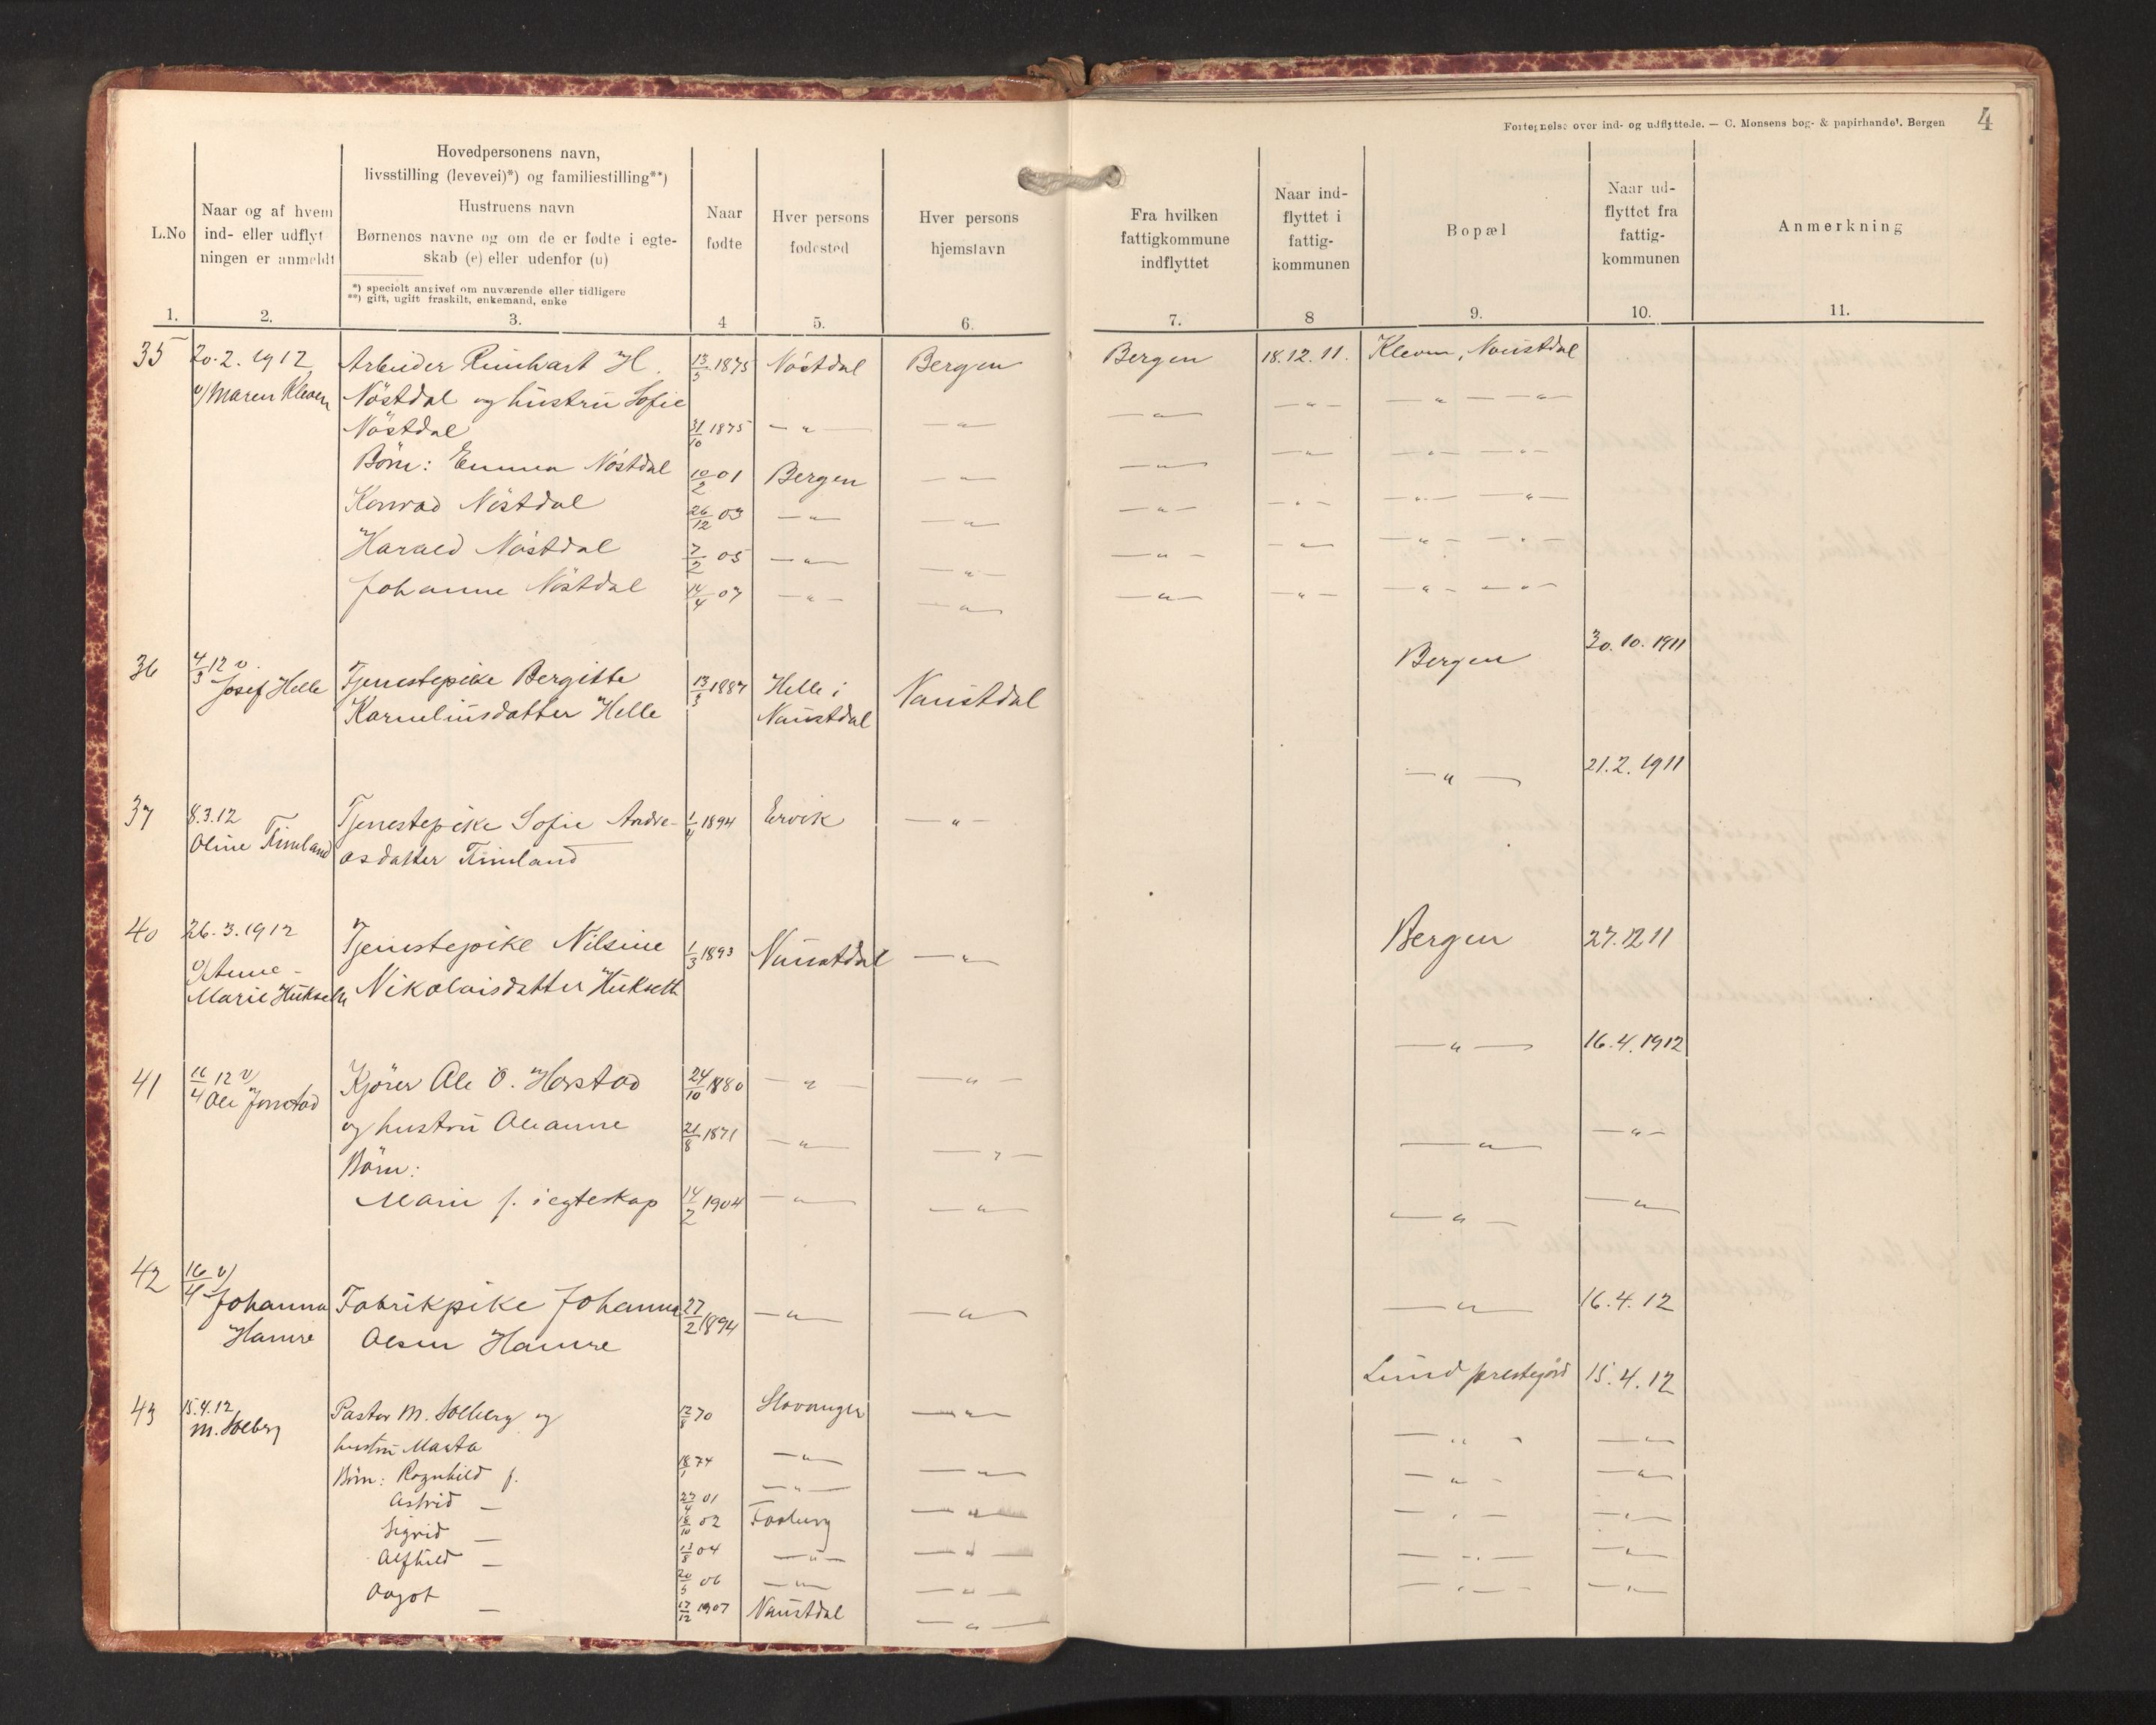 Fortegnelse over ind- og udflyttede. — C. Monsens bog- & papirhandel. Bergen 4
L.No
Naar og af hvem
ind- eller udflyt
ningen er anmeldt
Hovedpersonens navn,
livsstilling (levevei)*) og familiestilling**)
Hustruens navn
Børnenes navne og om de er fødte i egte-
skab (e) eller udenfor (u)
*) specielt angivet om nuværende eller tidligere
**) gift, ugift fraskilt, enkemand, enke
Naar
fødte
Hver persons
fødested
Hver persons
hjemstavn
Fra hvilken
fattigkommune
indflyttet
Naar ind-
flyttet i
fattig-
kommunen
Bopæl
Naar ud-
flyttet fra
fattig-
kommunen
Anmerkning
1. 2. 3. 4 5. 6. 7. 8 9. 10. 11.
35 20.2.1912 Arbeider Reinhart H. 13/5 1875 Nöstdal Bergen Bergen 18.12.11. Kleven, Naustdal
v/Maren Kleven Nöstdal og hustru Sofie
Nöstdal 31/10 1875 — " — — " — — " — — " — — " — — " —
Börn: Emma Nöstdal 10/2 01 Bergen — " — — " — — " — — " — — " —
Konrad Nöstdal 26/12 03 — " — — " — — " — — " — — " — — " —
Harald Nöstdal 7/2 05 — " — — " — — " — — " — — " — — " —
Johanne Nöstdal 14/4 07 — " — — " — — " — — " — — " — — " —
36 4/3 12 v. Tjenestepike Bergitte 13/3 1887 Helle i Naustdal Bergen 30.10.1911
Josef Helle Karneliusdatter Helle Naustdal
37 8.3.12 Tjenestepike Sofie Andre- 1/4 1894 Ervik — " — — " — 21.2.1911
Oline Timland asdatter Timland
40 26.3.1912 Tjenestepike Nilsine 1/3 1893 Naustdal — " — Bergen 27.12 11
v/Anne- Nikolaisdatter Hukseth
Marie Hukseth
41 16/4 12 v/ Kjörer Ole O. Horstad 24/10 1880 — " — — " — — " — 16.4.1912
Ole og hustru Oleanne 21/8 1871 — " — — " — — " — — " —
Börn:
Marie f. i egteskap 14/2 1904 — " — — " — — " — — " —
42 16/4 v/ Fabrikpike Johanna 27/2 1894 — " — — " — — " — 16.4.12
Johanna Olsen Hamre
Hamre
43 15.4.12 Pastor M. Solberg og 12/8 70 Stavanger — " — Lund prestegård 15.4.12
M. Solberg hustru Marta 18/1 74 — " — — " — — " — — " —
Börn: Ragnhild f. 27/4 01 — " — — " — — " — — " —
Astrid — 18/10 02 — " — — " — — " —
Sigrid — 13/8 04 — " — — " — — " — — " —
Alfhild — 20/5 06 — " — — " — — " — — " —
Aagot — 17/12 1907 Naustdal — " —